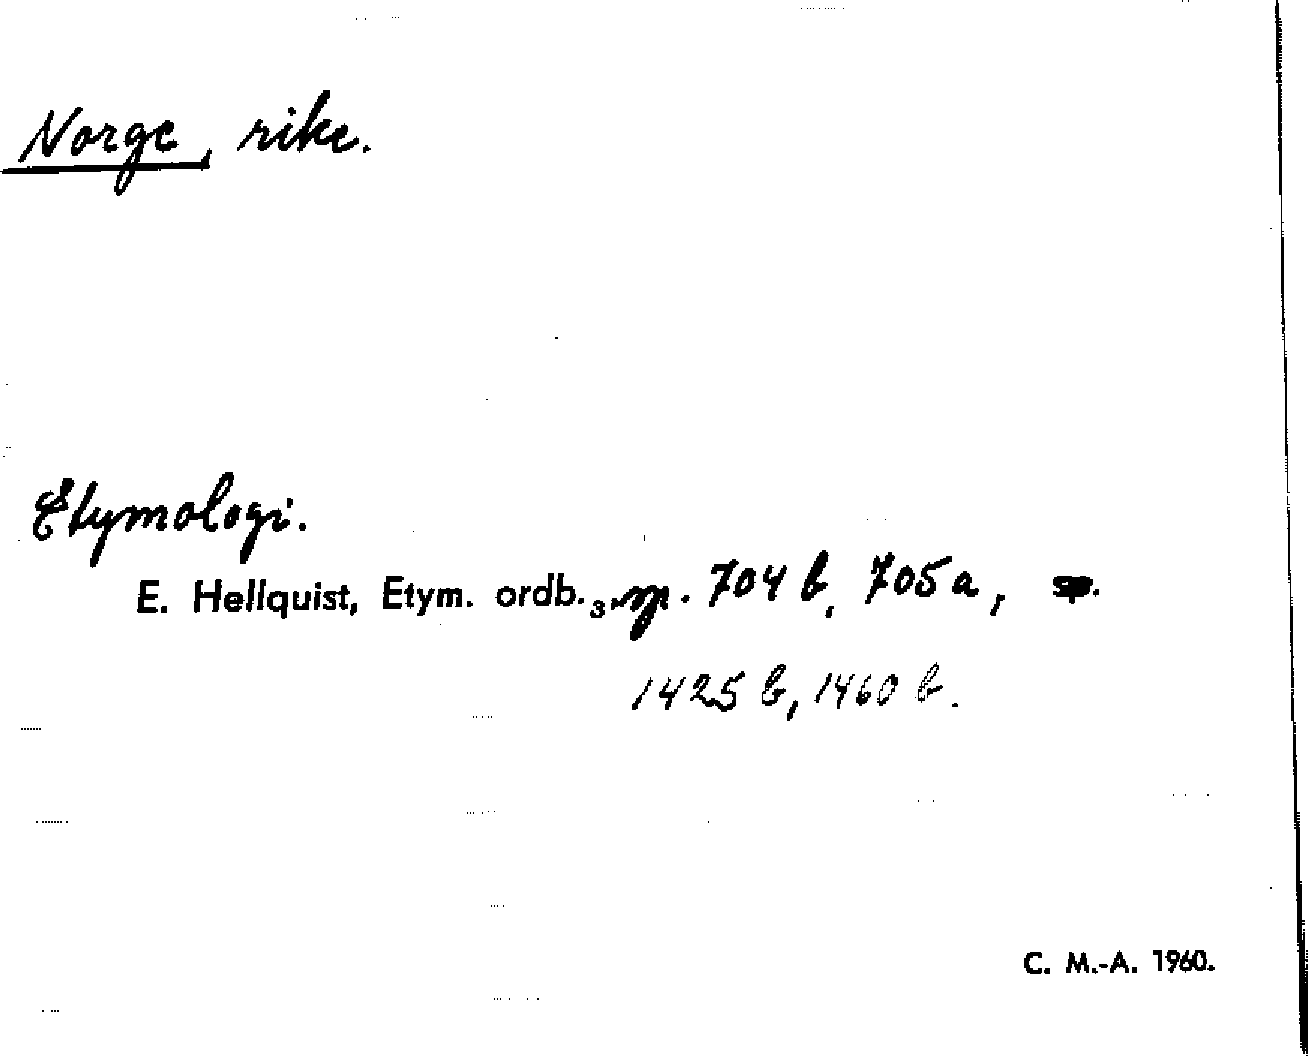 Norge, rike.
Etymologi.
E. Hellquist, Etym. ordb.3, sp. 704 b, 705 a,
1425 b, 1460 b.
C. M.-A. 1960.